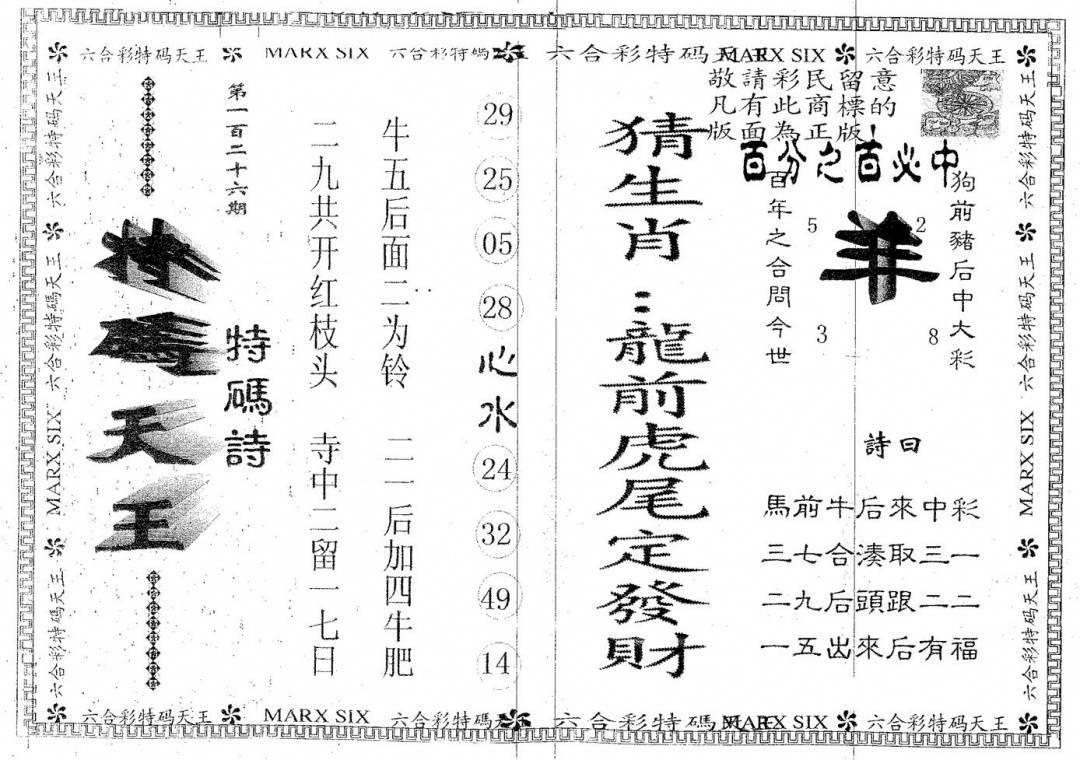 六合彩特码天王 MARX SIX 六合彩特碼天王 六合彩特码天王 MARX SIX 六合彩特码天王
敬請彩民留意
凡有此商標的
版面為正版!
百分之百必中
狗前豬后中大彩
羊
5
2
3
8
百年之合問今世
詩曰
馬前牛后來中彩
三七合湊取三一
二九后頭跟二二
一五出來后有福
猜生肖:龍前虎尾定發財
29
25
05
28
心水
24
32
49
14
牛五后面二为铃 二一后加四牛肥
二九共开红枝头 寺中二留一七日
特碼詩
第一百二十六期
特碼天王
六合彩特碼天王
六合彩特碼天王
MARX SIX
六合彩特碼天王
六合彩特碼天王
六合彩特碼天王
MARX SIX
六合彩特碼天王
六合彩特码天王 MARX SIX 六合彩特碼天王 六合彩特碼天王 MARX SIX 六合彩特码天王